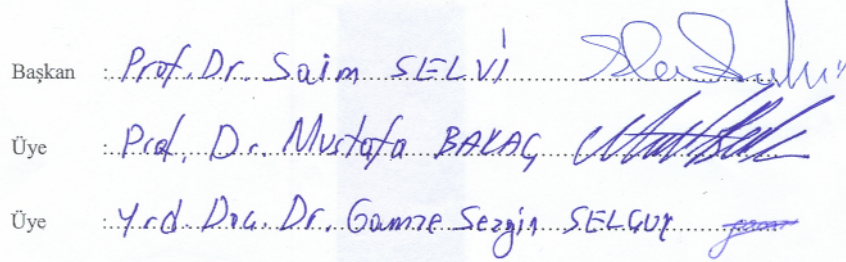 Başkan : Prof. Dr. Saim SELVİ
Üye : Prof. Dr. Mustafa BAKAÇ
Üye : Yrd. Doç. Dr. Gamze Sezgin SELÇUK